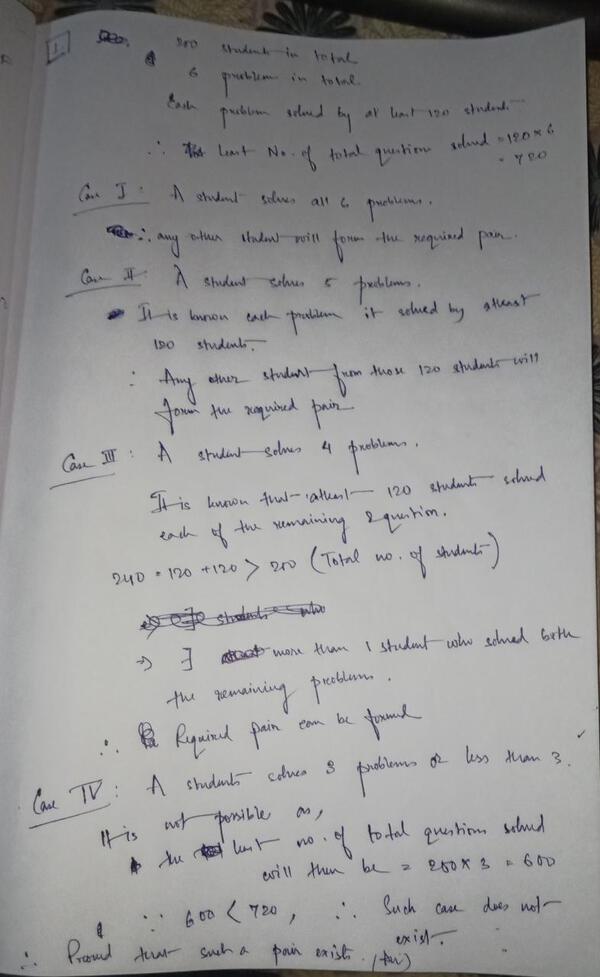 1.
200 students in total
6 problem in total
Each problem solved by at least 120 students.
∴ least No. of total question solved = 120 × 6
= 720
Case I : A student solves all 6 problems.
∴ any other student will form the required pair.
Case II : A student solves 5 problems.
It is known each problem is solved by atleast
120 students.
∴ Any other student from those 120 students will
form the required pair
Case III : A student solves 4 problems.
It is known that atleast 120 students solved
each of the remaining 2 question.
240 = 120 + 120 > 200 (Total no. of students)
⇒ ∃ more than 1 student who solved both
the remaining problems.
∴ Required pair can be formed
Case IV : A students solves 3 problems or less than 3.
It is not possible as,
the least no. of total questions solved
will then be = 200 × 3 = 600
∵ 600 < 720, ∴ Such case does not
exist.
∴ Prooved that such a pair exists.